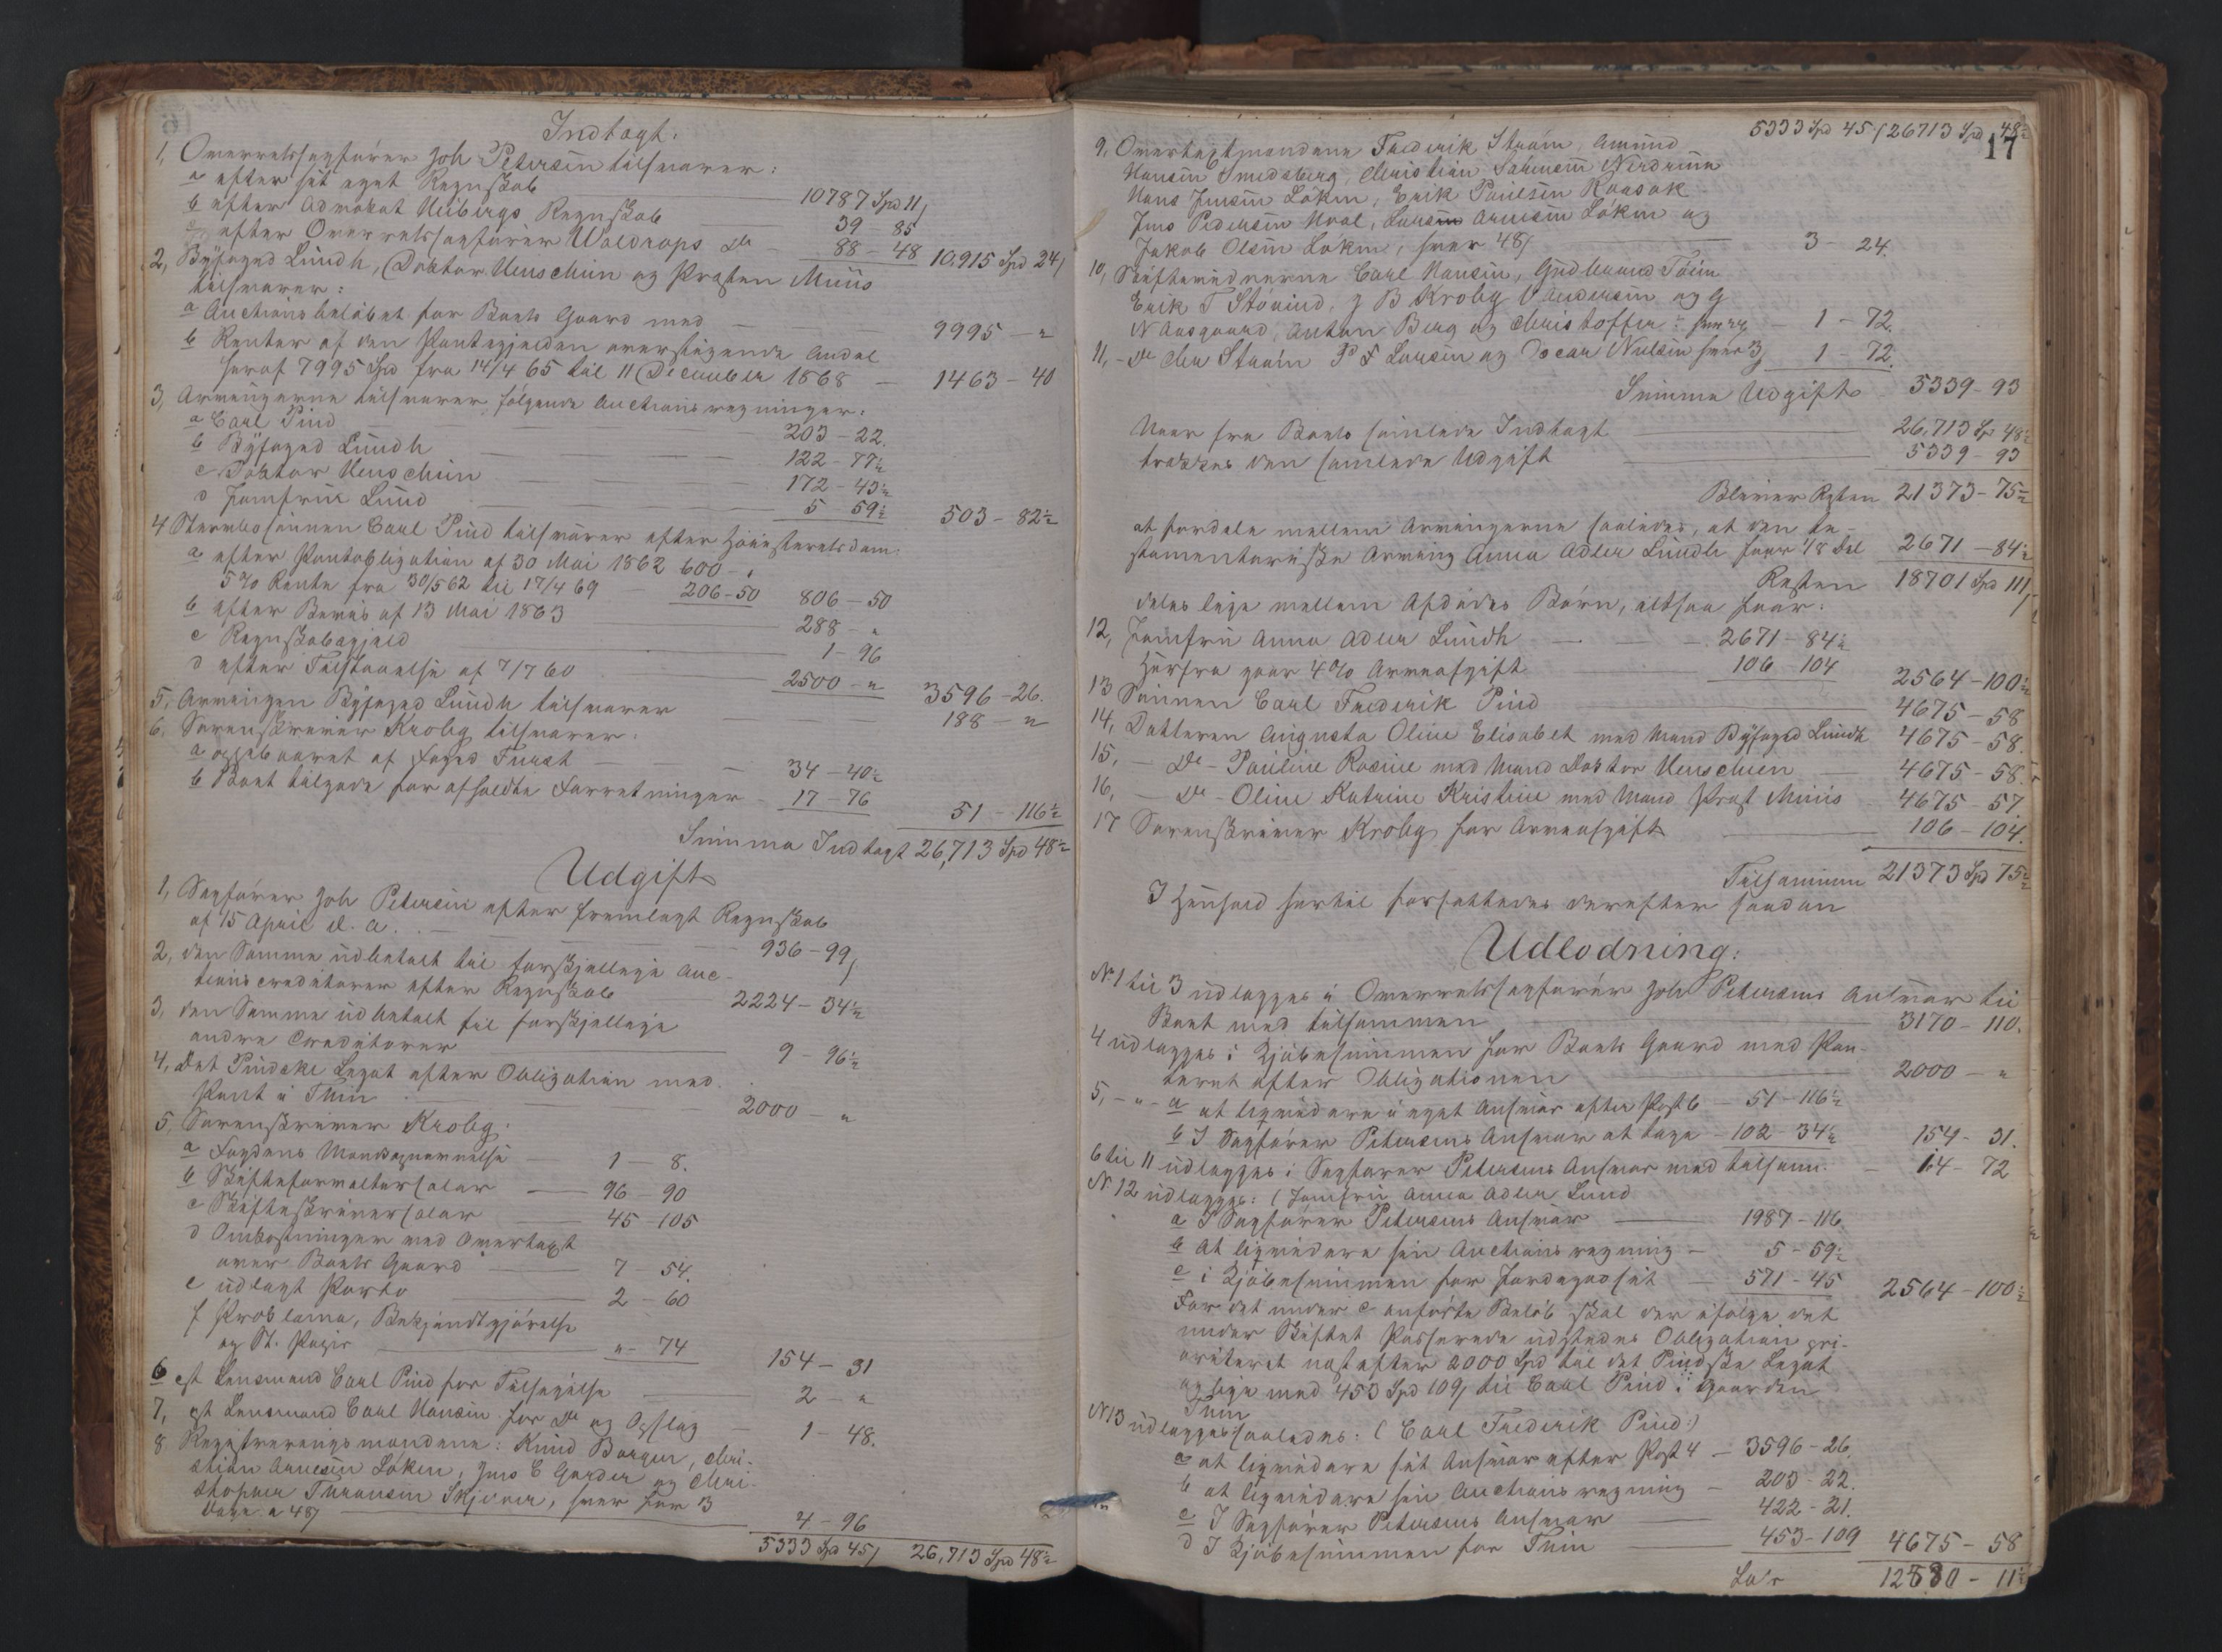 Indtægt.
1, Overretssagfører Joh Petersen tilsvarer:
a efter sit eget Regnskab 10787 Spd 11/
b efter Advokat Heibergs Regnskab 39 85
c efter Overretssagfører Woldrops Do 88 – 48 10,915 Spd 24/
2, Byfoged Lundh, Doktor Henschien og Prosten Muus
tilsvarer:
a Auctionsbeløbet for Boets Gaard med 9995 – "
b Renter af den Pantegjælden overstigende Andel
heraf 7995 Spd fra 14/4 65 til 11 December 1868 – 1463 – 40
3, Arvingerne tilsvarer følgende Auctionsregninger:
a Carl Pind 203 – 22.
b Byfoged Lundh 122 – 77½
c Doktor Henschien 172 – 43½
d Jomfru Lund 5 59½ 503 – 82½
4 Stervbosønnen Carl Pind tilsvarer efter Høiesteretsdom:
a efter Pantobligation af 30 Mai 1862 600 – "
5% Rente fra 30/5 62 til 17/4 69 – 206 – 50 806 – 50
b efter Bevis af 13 Mai 1863 288 – "
c Regnskabsgjæld 1 – 96
d efter Tilstaaelse af 7/7 60 2500 – " 3596 – 26.
5, Arvingen Byfoged Lundh tilsvarer 188 – "
6, Sorenskriver Krohg tilsvarer:
a oppebaaret af Foged Furst 34 – 40½
b Boet tilgode for afholdte Forretninger – 17 – 76 51 – 116½
Summa Indtægt 26,713 Spd 48½
Udgift
1, Sagfører Joh Petersen efter fremlagt Regnskab
af 15 April d. a. 936 – 99/
2, den Samme udbetalt til forskjellige Auc-
tionscreditorer efter Regnskab 2224 – 34½
3, den Samme udbetalt til forskjellige
andre Creditorer 9 – 96½
4, Det Pindske Legat efter Obligation med
Pant i Tuin 2000 – "
5, Sorenskriver Krohg:
a Fogdens Mandsopnævnelse 1 – 8.
b Skifteforvaltersalær 96 – 90
c Skifteskriversalær 45 – 105
d Omkostninger ved Overtaxt
over Boets Gaard 7 – 54.
e udlagt Porto 2 – 60
f Proklama, Bekjendtgjørelse
og St. Papir " – 74 154 – 31
6 cst Lensmand Carl Pind for Tilsigelse 2 – "
7, cst Lensmand Carl Hansen for Do og Opslag 1 – 48.
8 Registreringsmændene: Knud Borger, Chri-
stian Arnesen Løken, Jens C Garder og Chri-
stopher Thoresen Skjever, hver for 3
Dage a 48/ 4 – 96
5333 Spd 45/ 26,713 Spd 48½
17
5333 Spd 45/ 26713 Spd 48½
9, Overtaxtmændene Frederik Strøm, Amund
Hansen Smedsberg, Christian Sørensen Nerdrum
Hans Jensen Løken, Erik Paulsen Kaasak
Jens Pedersen Hval, Lars Arnesen Løken og
Jakob Olsen Løken, hver 48/ 3 – 24.
10, Skiftevidnerne Carl Hansen, Gudbrand Tøien
Erik T Støvind, J B Krohg, Andersen og G
N Aasgaard, Anton Berg og Christoffer: hver 24/ – 1 – 72.
11, – Do Chr Strøm Pd F Larsen og Oscar Nielsen hver 3/ 1 – 72.
Summa Udgift 5339 – 93
Naar fra Boets samlede Indtægt 26,713 Sp 48½
trækkes den samlede Udgift 5339 – 93
Bliver Resten 21373 – 75½
at fordele mellem Arvingerne saaledes, at den te-
stamentariske Arving Anna Adler Lundh faar 1/8 Del 2671 – 84½
Resten 18701 Spd 111/
deles lige mellem Afdødes Børn, altsaa faar:
12, Jomfru Anna Adler Lundh 2671 – 84½
Herfra gaar 4% Arveafgift 106 104 2564 – 100½
13 Sønnen Carl Frederik Pind 4675 – 58
14, Datteren Augusta Oline Elisabet med Mand Byfoged Lundh 4675 – 58.
15, – Do – Pauline Rosine med Mand Doktor Henschien 4675 – 58.
16, – Do – Oline Katrine Kristine med Mand Prost Muus 4675 – 57.
17 Sorenskriver Krohg for Arveafgift 106 – 104.
Tilsammen 21373 Spd 75½
I Henhold hertil forfattedes derefter saadan
Udlodning:
No 1 til 3 udlægges i Overretssagfører Joh Petersens Ansvar til
Boet med tilsammen 3170 – 110.
4 udlægges i Kjøbesummen for Boets Gaard med Pan-
teret efter Obligationen 2000 – "
5, – " – a at liqvidere i eget Ansvar efter Post 6 – 51 – 116½
b I Sagfører Petersens Ansvar at tage – 102 34½ 154 – 31.
6 til 11 udlægges i Sagfører Petersens Ansvar med tilsam. – 14 – 72
No 12 udlægges: (Jomfru Anna Adler Lund
a I Sagfører Petersens Ansvar 1987 – 116.
b At liqvidere sin Auctionsregning – 5 – 59½
c i Kjøbesummen for Jordegodset 571 – 45 2564 – 100½
For det under c anførte Beløb skal der ifølge det
under Skiftet Passerede udstedes Obligation pri-
oriteret næst efter 2000 Spd til det Pindske Legat
og lige med 453 Spd 109/ til Carl Pind i Gaarden
Tuin
No 13 udlægges saaledes: (Carl Frederik Pind:)
a at liqvidere sit Ansvar efter Post 4 – 3596 – 26.
b at liqvidere sin Auctionsregning – 203 – 22.
c I Sagfører Petersens Ansvar 422 – 21.
d I Kjøbesummen for Tuin 453 – 109 4675 – 58
La's 12580 – 11½